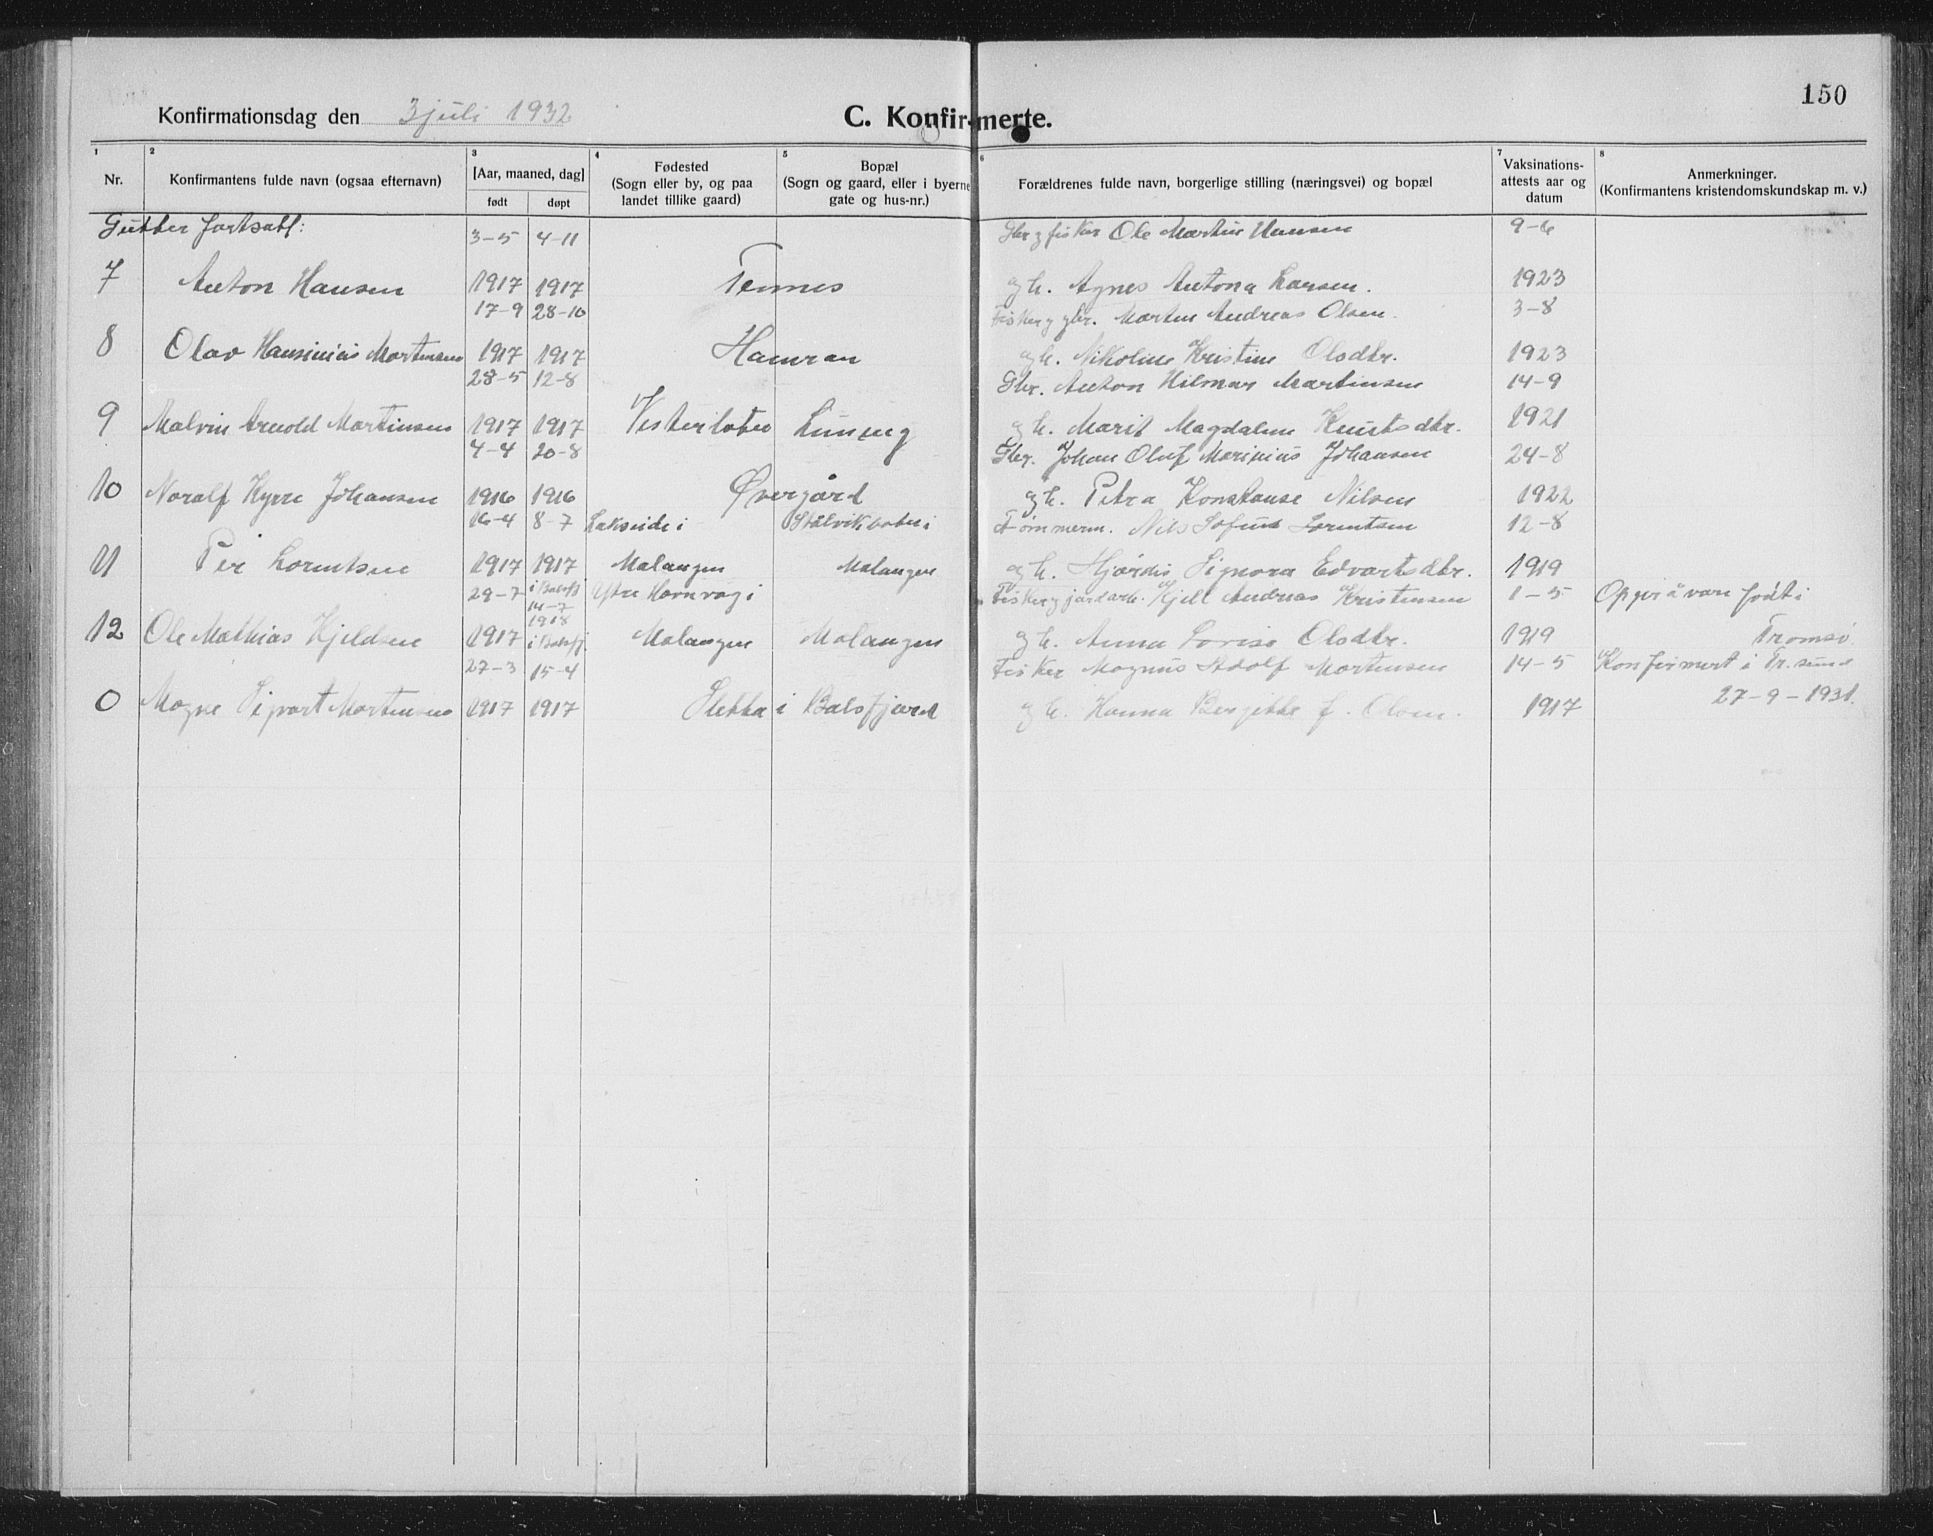 150
Konfirmationsdag den 3 juli 1932 C. Konfirmerte.
1 2 3 4 5 6 7 8
Nr. Konfirmantens fulde navn (ogsaa efternavn) [Aar, maaned, dag] født døpt Fødested (Sogn eller by, og paa landet tillike gaard) Bopæl (Sogn og gaard, eller i byerne gate og hus-nr.) Forældrenes fulde navn, borgerlige stilling (næringsvei) og bopæl Vaksinations-attests aar og datum Anmerkninger. (Konfirmantens kristendomskundskap m. v.)
Gutter fortsatt: 3-5 4-11 Gbr og fisker Ole Martin Hansen 9-6
7 Anton Hansen 1917 1917 Tennes og h. Agnes Antona Larsen. 1923
17-9 28-10 Fisker og gbr. Martin Andreas Olsen. 3-8
8 Olav Hansinius Martinsen 1917 1917 Hamran og h. Nikoline Kristine Olsdtr. 1923
28-5 12-8 Gbr. Anton Hilmar Martinsen 14-9
9 Malvin Arnold Martinsen 1917 1917 og h. Marit Magdalene Knutsdtr. 1921
4-4 20-8 Gbr. Johan Oluf Marinius Johansen 24-8
10 Noralf Kyrre Johansen 1916 1916 Øvergård og h. Petra Konstanse Nilsen 1922
16-4 8-7 Lakselide i Stålvikboten i Tømmerm. Nils Sofus Lorentsen 12-8
11 Per Lorentsen 1917 1917 Malangen Malangen og h. Hjørdis Signora Edvartsdtr. 1919
29-7 i Balsfj 14-7 1918 Ytre Hamnvåg i Fisker og jordarb. Kjell Andreas Kristensen 1-5 Oppgir å være født i
12 Ole Mathias Kjeldsen 1917 i Balsfj. Malangen Malangen og h. Anna Lovise Olsdtr. 1919 Tromsø
27-3 15-4 Fisker Magnus Adolf Mortensen 14-5 Konfirmert i Tr.sund
0 Magne Sigvart Mortensen 1917 1917 Slekka i Balsfjord og h. Hanna Bergitte f. Olsen. 1917 27-9-1931.